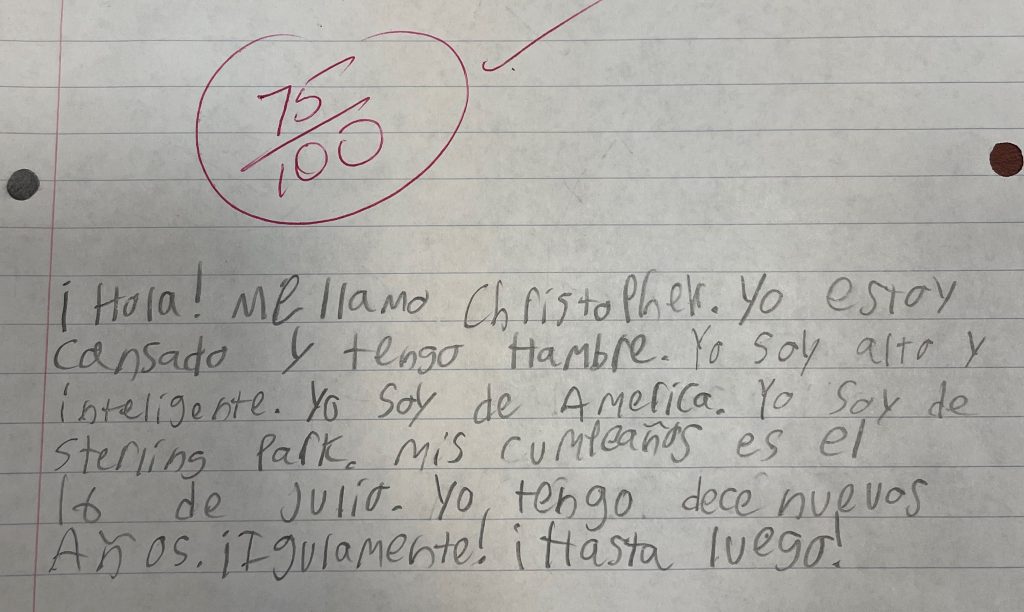 75/100
¡Hola! Me llamo Christopher. Yo estoy
cansado y tengo Hambre. Yo soy alto y
inteligente. Yo soy de America. Yo soy de
Sterling Park. Mis cumpleaños es el
16 de Julio. Yo tengo dece nuevos
Años. ¡Igulamente! ¡Hasta luego!